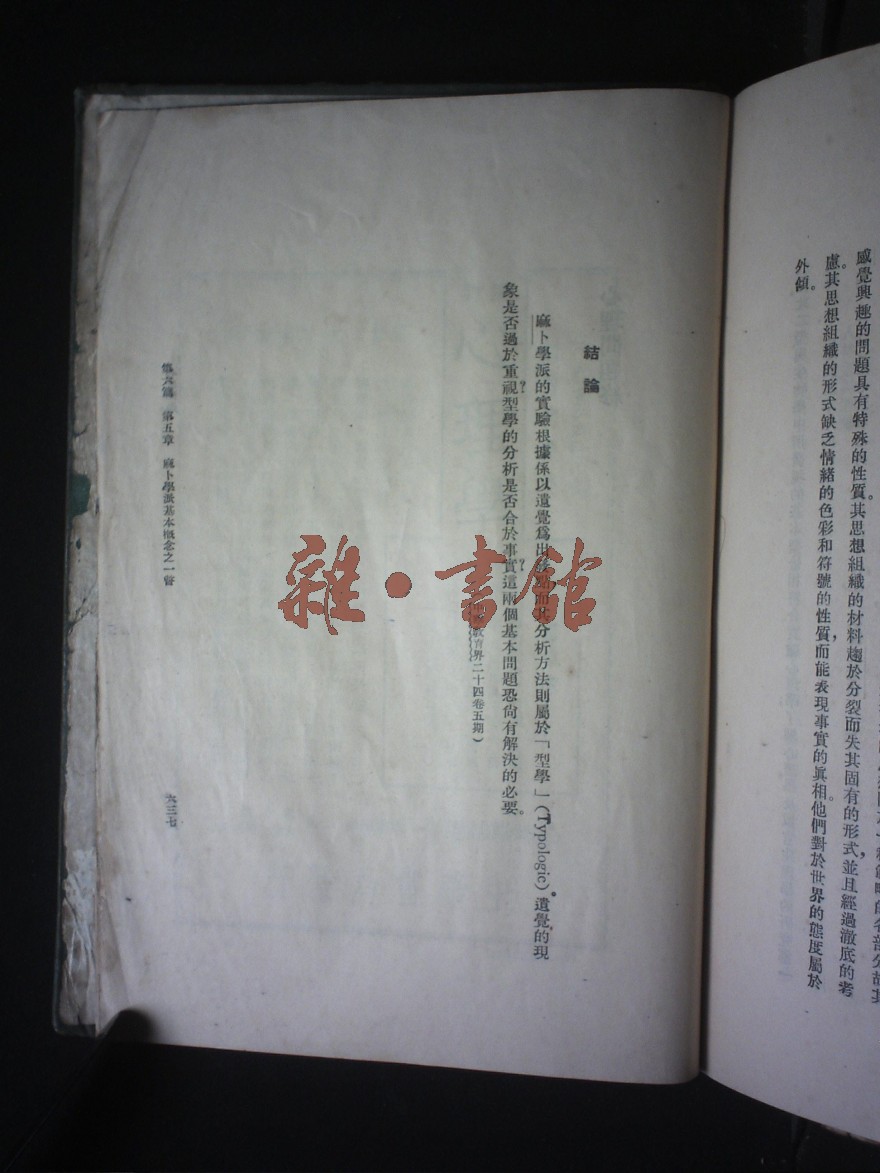 感覺興趣的問題具有特殊的性質。其思想組織的材料趨於分裂而失其固有的形式，並且經過澈底的考
慮。其思想組織的形式缺乏情緒的色彩和符號的性質，而能表現事實的眞相他們對於世界的態度屬於
外傾。
結論
麻卜學派的實驗根據係以遺覺爲出發點而其分析方法則屬於「型學」(Typologie)。遺覺的現
象是否過於重視？型學的分析是否合於事實？這兩個基本問題恐尙有解決的必要。
教育界二十四卷五期）
第六篇 第五章 麻卜學派基本概念之一瞥
六三七
雜·書館